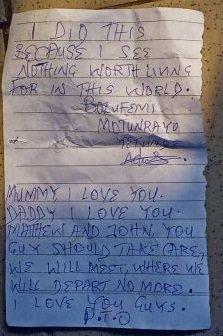 I DID THIS
BECAUSE I SEE
NOTHING WORTH LIVING
FOR IN THIS WORLD.
BOLUFEMI
MOTUNRAYO
MUMMY I LOVE YOU.
DADDY I LOVE YOU.
MATTHEW AND JOHN, YOU
GUY SHOULD TAKE CARE,
WE WILL MEET, WHERE WE
WILL DEPART NO MORE.
LOVE YOU GUYS.
P.T.O